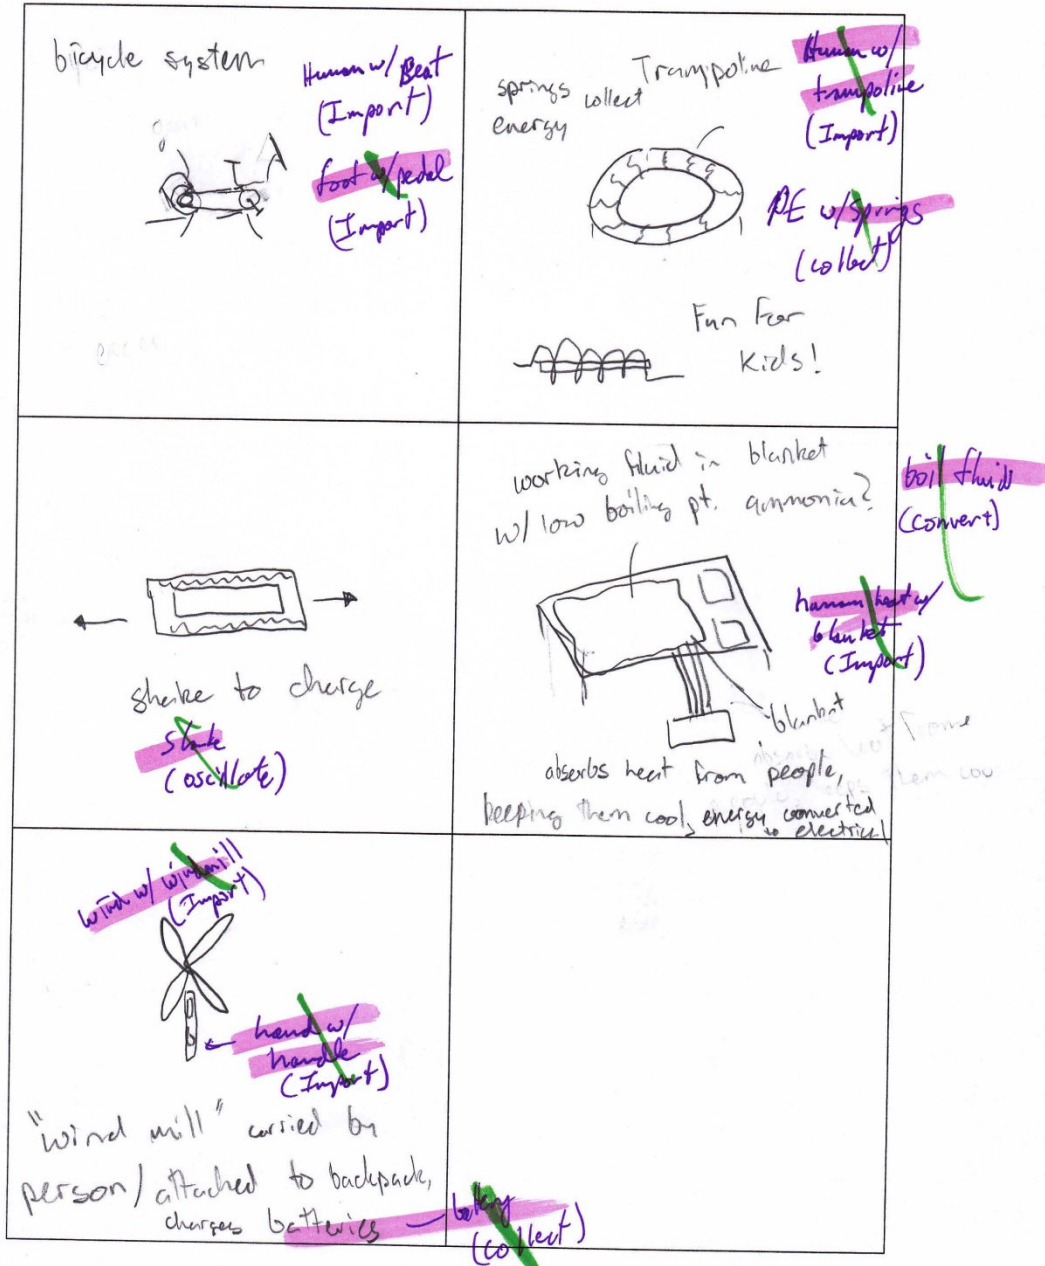 bicycle system
Human w/ Seat
(Import)
foot w/ pedal
(Import)
Trampoline
springs collect
energy
Human w/
trampoline
(Import)
PE w/ springs
(collect)
Fun For
Kids!
shake to charge
shake
(oscillate)
working fluid in blanket
w/ low boiling pt. ammonia?
boil fluid
(convert)
human heat w/
blanket
(Import)
blanket
absorbs heat from people,
keeping them cool, energy converted
to electrical
wind w/ windmill
(Import)
hand w/
handle
(Import)
"wind mill" carried by
person/attached to backpack,
charges batteries
battery
(collect)